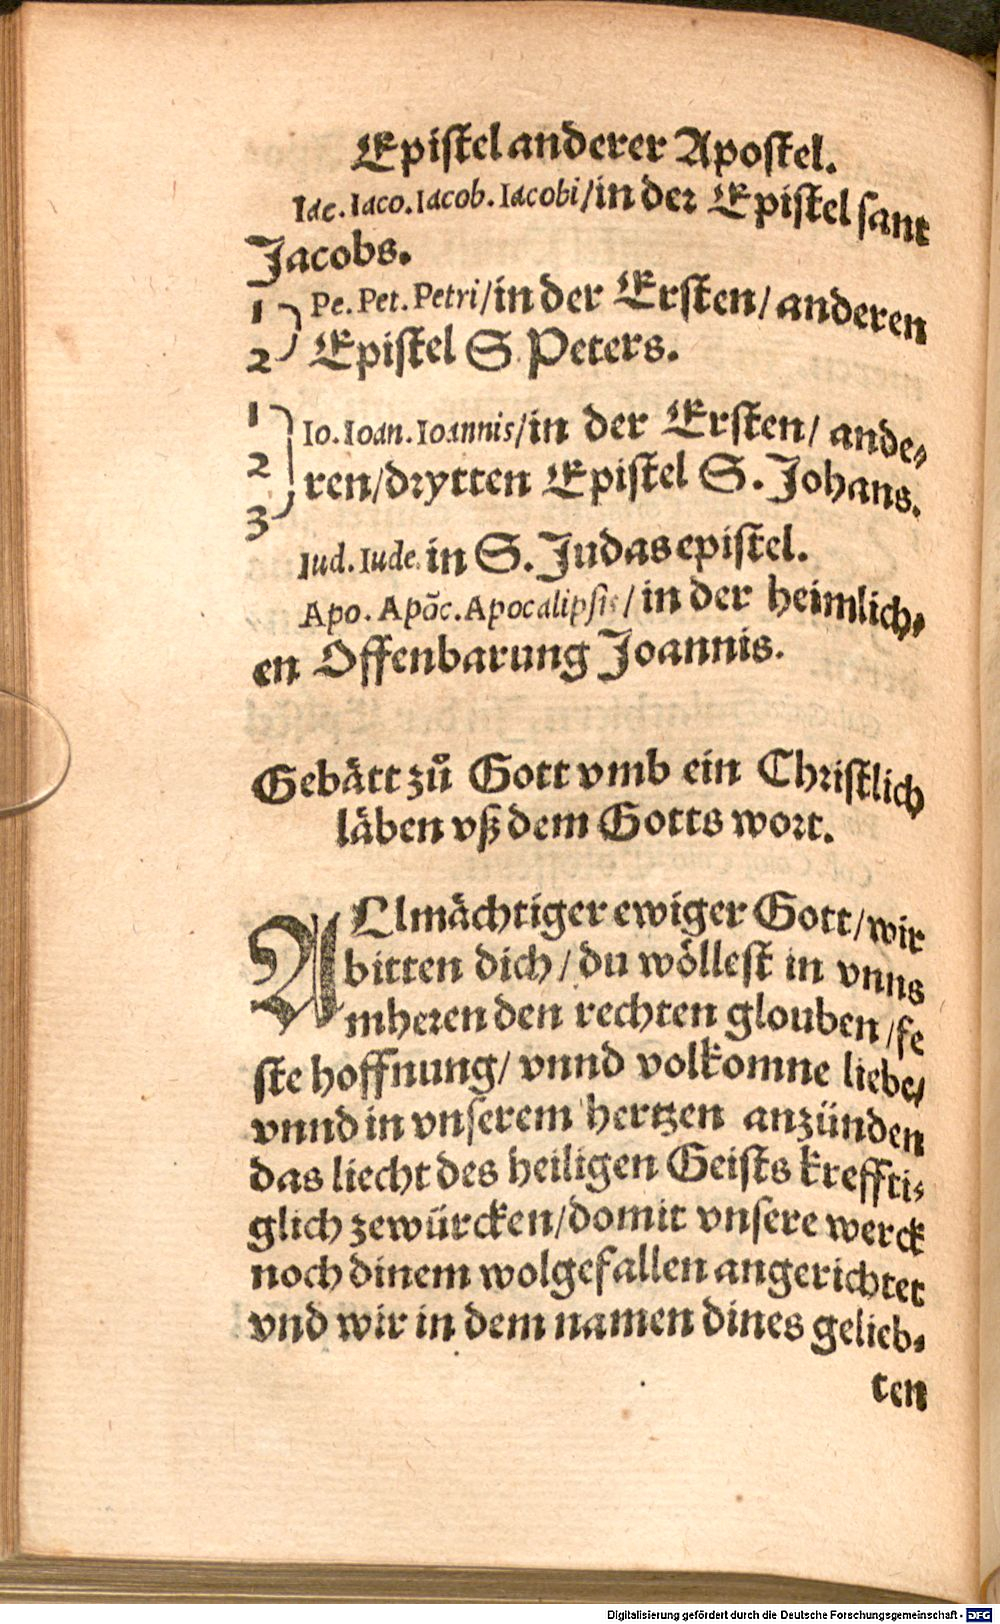 Epistel anderer Apostel.
Iac. Iaco. Iacob. Iacobi/in der Epistel sant
Jacobs.
1 Pe. Pet. Petri/in der Ersten/anderen
2 Epistel S Peters.
1 Io. Ioan. Ioannis/in der Ersten/ ande⸗
2 ren/drytten Epistel S. Johans.
3
Iud. Iude. in S. Judas epistel.
Apo. Apōc. Apocalipsis/in der heimlich⸗
en Offenbarung Joannis.
Gebätt zů Gott vmb ein Christlich
läben vß dem Gotts wort.
ALmächtiger ewiger Gott/wir
bitten dich/du wöllest in vnns
mheren den rechten glouben/fe
ste hoffnung/ vnnd volkomne liebe/
vnnd in vnserem hertzen anzünden
das liecht des heiligen Geists kreffti⸗
glich zewürcken/domit vnsere werck
noch dinem wolgefallen angerichtet
vnd wir in dem namen dines gelieb⸗
ten
Digitalisierung gefördert durch die Deutsche Forschungsgemeinschaft - DFG